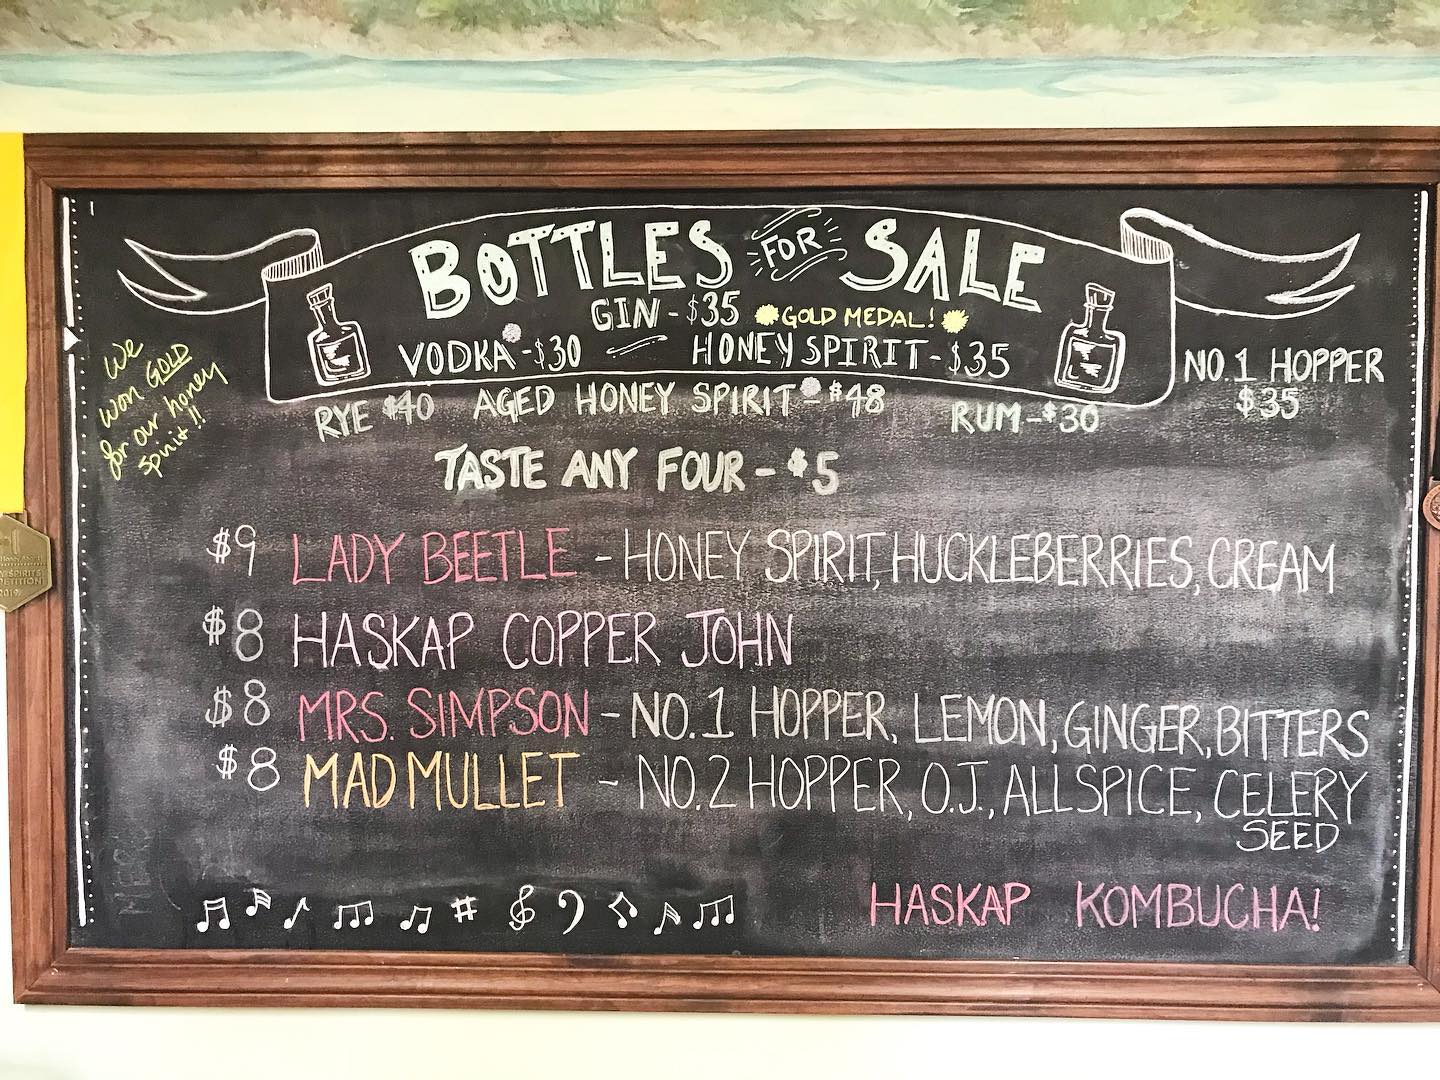 BOTTLES FOR SALE
GIN - $35 GOLD MEDAL!
VODKA - $30 — HONEY SPIRIT - $35
NO. 1 HOPPER
$35
RYE $40 AGED HONEY SPIRIT - $48 RUM - $30
We
won GOLD
for our honey
spirit!!
TASTE ANY FOUR - $5
$9 LADY BEETLE - HONEY SPIRIT, HUCKLEBERRIES, CREAM
$8 HASKAP COPPER JOHN
$8 MRS. SIMPSON - NO. 1 HOPPER, LEMON, GINGER, BITTERS
$8 MAD MULLET - NO. 2 HOPPER, O.J., ALLSPICE, CELERY
SEED
HASKAP KOMBUCHA!
SPIRITS
2019